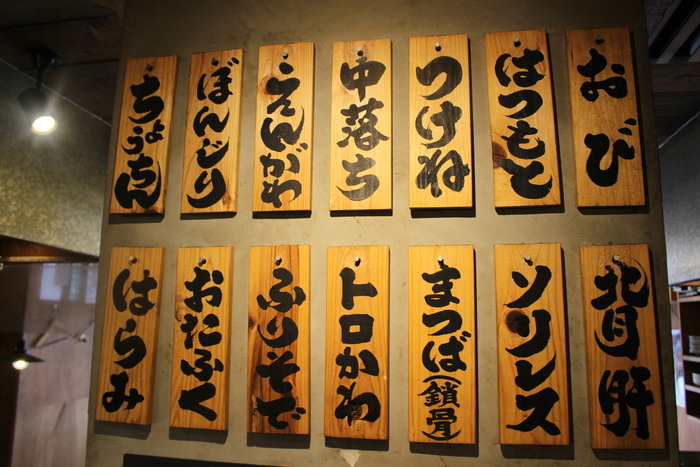 おび
はつもと
つけね
中落ち
えんがわ
ぼんじり
ちょうちん
背肝
ソリレス
まつば(鎖骨)
トロかわ
ふりそで
おたふく
はらみ